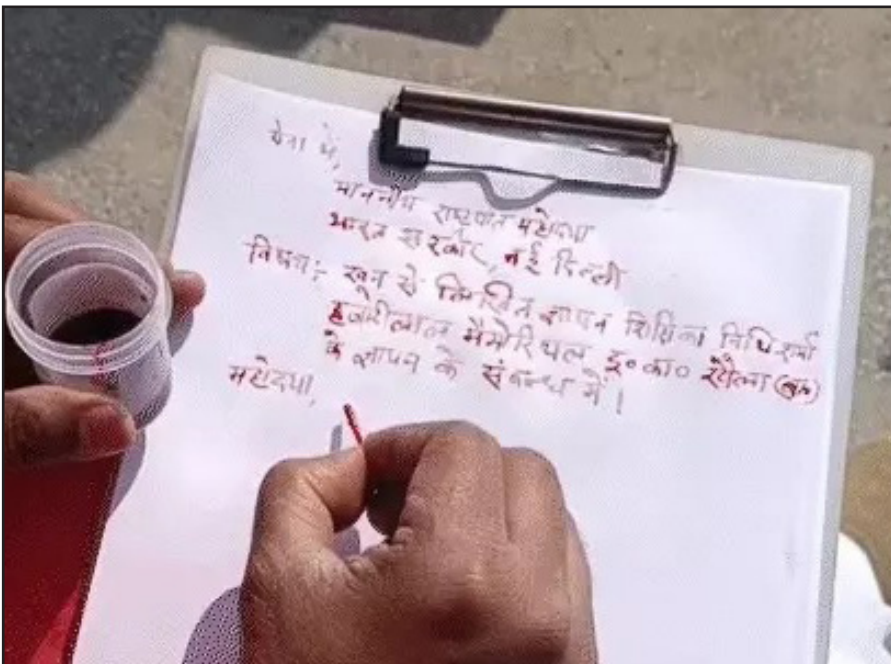 सेवा में,
माननीय राष्ट्रपति महोदया
भारत सरकार, नई दिल्ली
विषय:- खून से लिखित ज्ञापन शिक्षिका निधि शर्मा
हजारीलाल मैमोरियल इ०का०
के ज्ञापन के संबन्ध में।
महोदया,